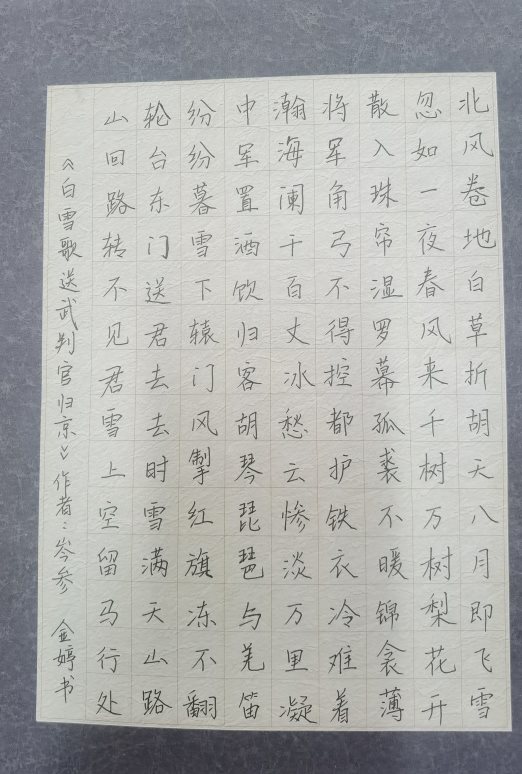 北风卷地白草折胡天八月即飞雪
忽如一夜春风来千树万树梨花开
散入珠帘湿罗幕孤裘不暖锦衾薄
将军角弓不得控都护铁衣冷难着
瀚海阑干百丈冰愁云惨淡万里凝
中军置酒饮归客胡琴琵琶与羌笛
纷纷暮雪下辕门风掣红旗冻不翻
轮台东门送君去去时雪满天山路
山回路转不见君雪上空留马行处
《白雪歌送武判官归京》作者：岑参 金婷书